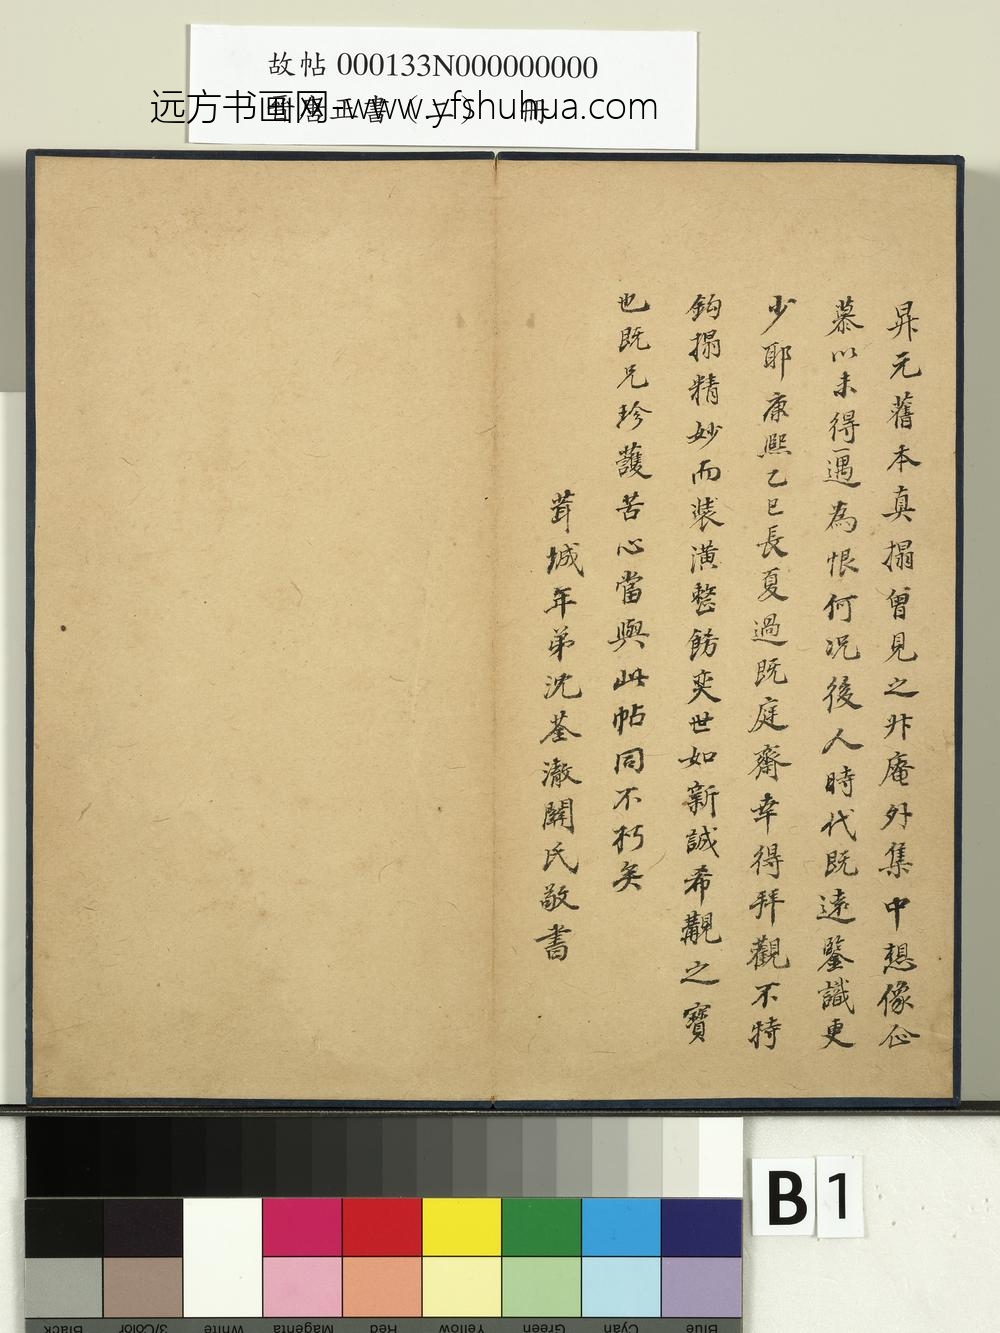 故帖 000133N000000000
远方书画网-www.yfshuhua.com
昇元舊本真搨曾見之升庵外集中想像企
慕以未得一遇為恨何況後人時代既遠鑒識更
少耶康熙乙巳長夏過既庭齋幸得拜觀不特
鈎搨精妙而裝潢整飭奕世如新誠希覯之寶
也既兄珍護苦心當與此帖同不朽矣
茸城年弟沈荃澈閒氏敬書
B1
Black
3/Color
White
Magenta
Red
Yellow
Green
Cyan
Blue